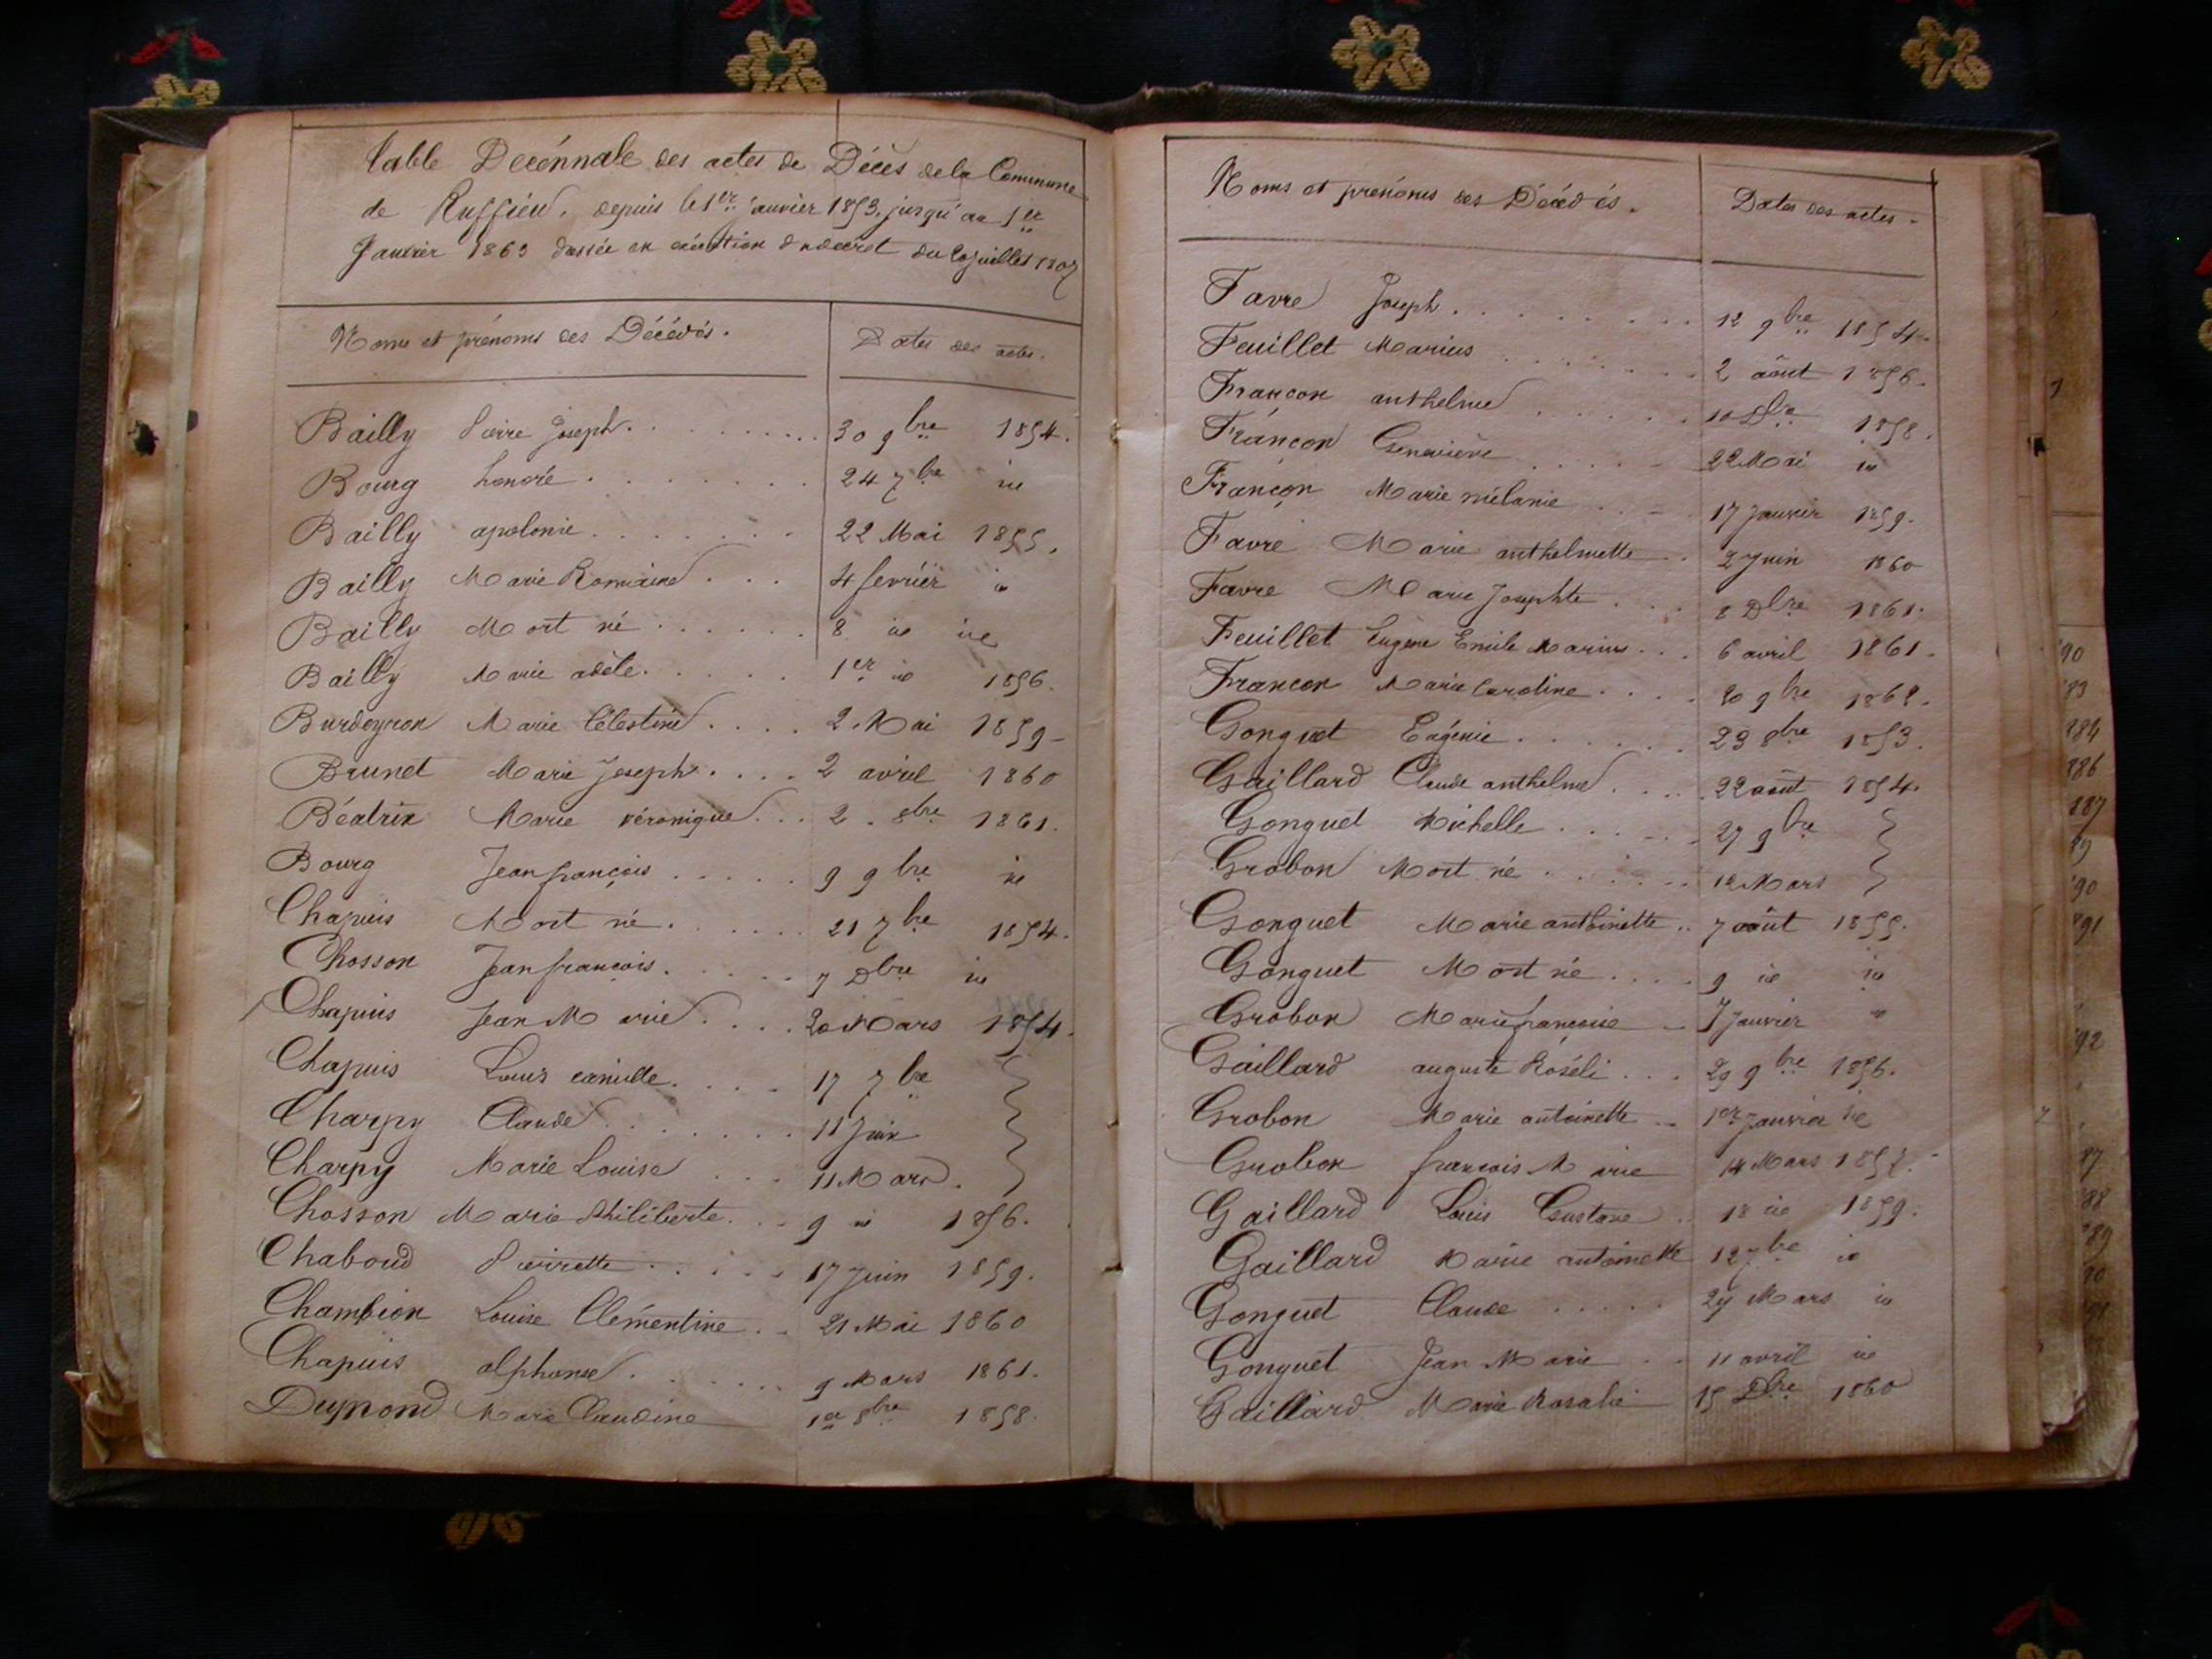 Table Décénnale des actes de Décès de la Commune
de Ruffieu. depuis le 1er janvier 1853. jusqu'au 1er
Janvier 1863 dressée en exécution du décret du 20 juillet 1807
Noms et prénoms des Décédés.
Dates des actes.
Bailly Pierre Joseph. 30 9bre 1854.
Bourg honoré 24 7bre id
Bailly apolonie 22 Mai 1855.
Bailly Marie Romaine 4 fevrier id
Bailly Mort né 8 id id
Bailly Marie adèle. 1er id 1856.
Burdeyron Marie Célestine 2. Mai 1859
Brunet Marie Joseph. 2 avril 1860
Béatrix Marie véronique 2. 8bre 1861.
Bourg Jean françois 9 9bre id
Chapuis Mort né. 21 7bre 1854.
Chosson Jean françois. 7 Dbre id
Chapuis Jean Marie 20 Mars 1854.
Chapuis Louis camille. 17 7bre
Charpy Claude 11 Juin
Charpy Marie Louise 11 Mars.
Chosson Marie Philiberte. 9 id 1856.
Chaboud Pierrette 17 Juin 1859.
Chambion Louise Clémentine. 21 Mai 1860
Chapuis alphonse 9 Mars 1861.
Dupond Marie Claudine 1er 8bre 1858.
Noms et prénoms des Décédés.
Dates des actes.
Favre Joseph. 12 9bre 1854.
Feuillet Marius 2 août 1856.
Françon anthelme 10 Dbre 1858.
Françon Geneviève 22 Mai id
Françon Marie mélanie 17 Janvier 1859.
Favre Marie anthelmette 2 Juin 1860
Favre Marie Josephte 8 Dbre 1861.
Feuillet Eugène Emile Marius 6 avril 1861.
Françon Marie Caroline 20 9bre 1862.
Gonguet Eugénie 23 8bre 1853.
Gaillard Claude anthelme 22 août 1854.
Gonguet Michelle 27 9bre
Grobon Mort né 12 Mars
Gonguet Marie anthoinette 7 août 1855.
Gonguet Mort né 9 id id
Grobon Marie françoise 7 Janvier "
Gaillard auguste Roséli 29 9bre 1856.
Grobon Marie antoinette 1er Janvier id
Grobon francois Marie 14 Mars
Gaillard Louis Gustave 18 id 1859.
Gaillard Marie antoinette 12 7bre id
Gonguet Claude Mars id
Gonguet Jean Marie 11 avril id
Gaillard Marie Rosalie 15 Dbre 1860
90
89
884
886
887
89
90
91
92
87
88
89
90
91